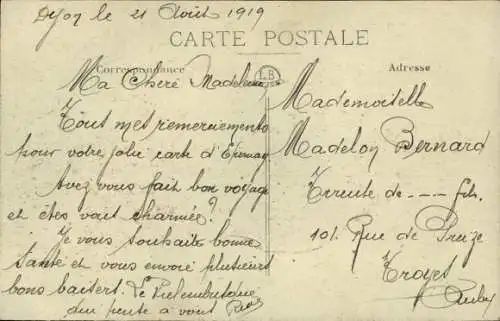 Dijon le 21 Août 1919
CARTE POSTALE
Correspondance
LB
Adresse
Ma Cheré Madelein
Tout mes remerciements
pour votre jolie carte d'Epernay
Avez vous fait bon voyage
et êtes vous charmée?
Je vous souhaite bonne
santé et vous envoie plusieurs
bons baisers. Le
qui pense a vous
Mademoiselle
Madelon Bernard
de --- fils
101. Rue de Preize
Troyes
Aube